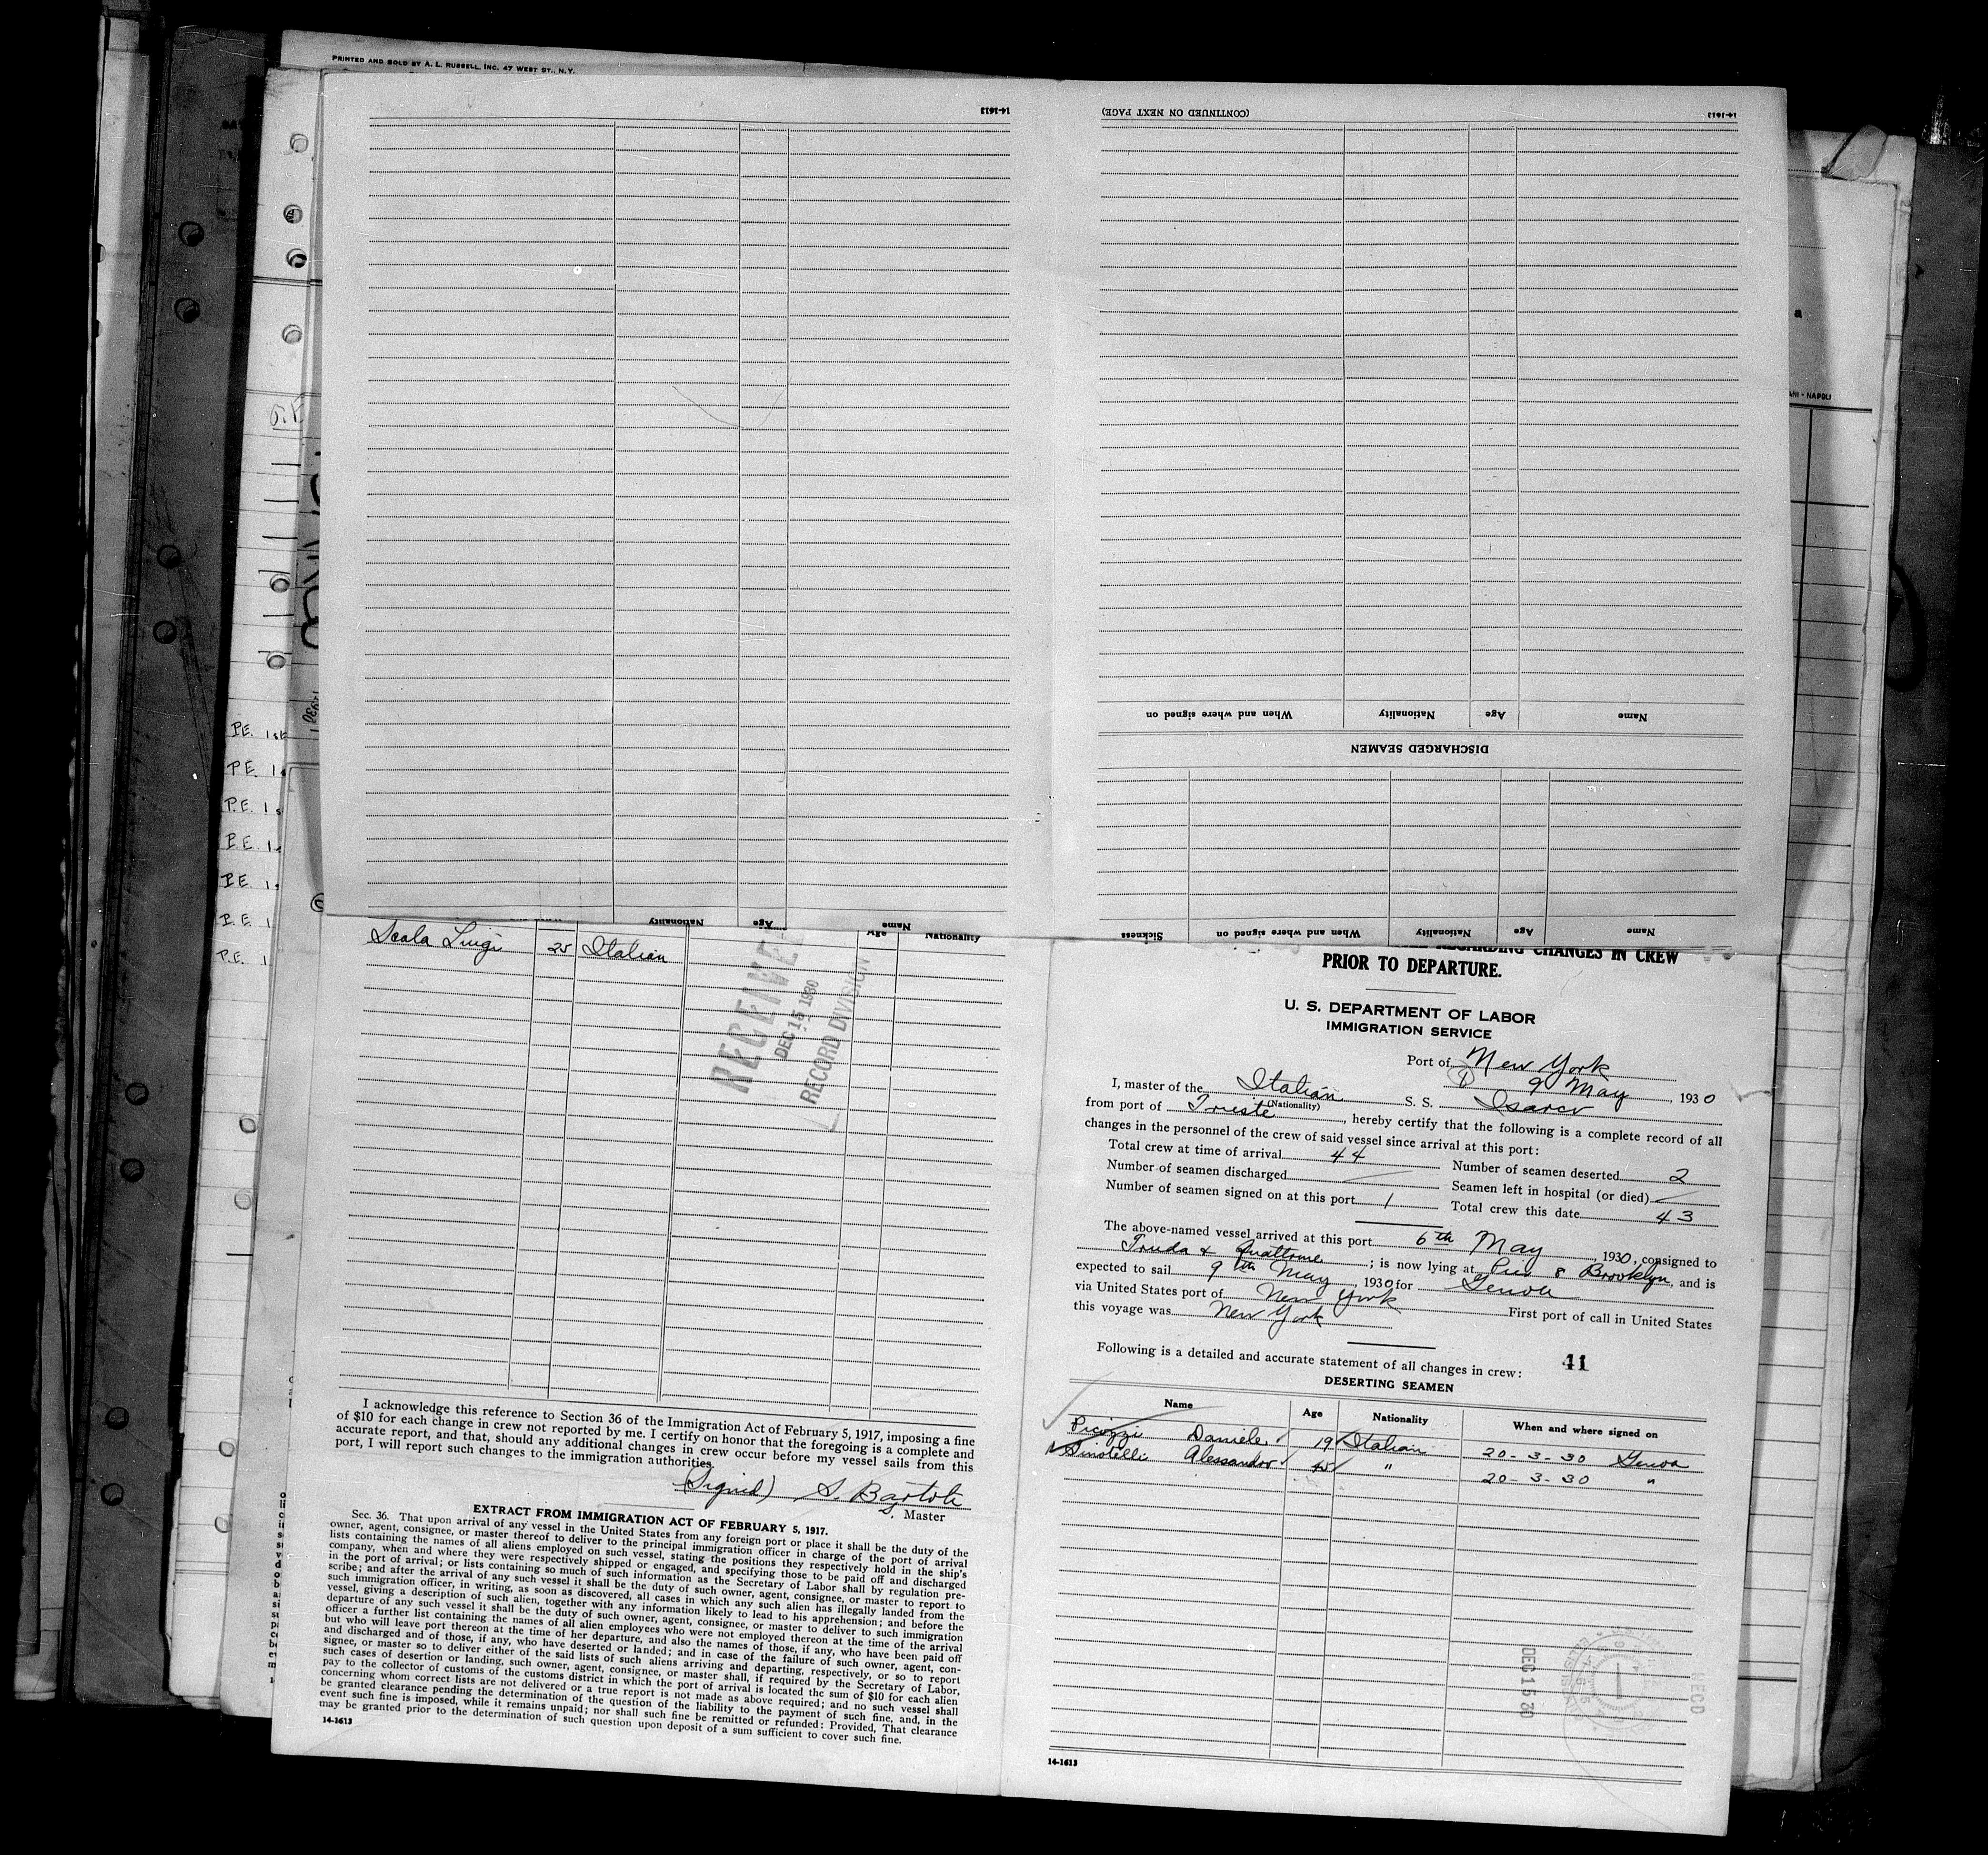 PRINTED AND SOLD BY A. L. RUSSELL, INC. 47 WEST ST., N.Y.
14-1613
(CONTINUED ON NEXT PAGE)
14-1613
ANI - NAPOLI
a
P.E. 1
P.E. 1
P.E. 1
P.E. 1
P.E. 1
P.E. 1
P.E. 1
When and where signed on Nationality Age Name
DISCHARGED SEAMEN
Sickness When and where signed on Nationality Age Name
Nationality Age Name
Age Nationality
Scala Luigi 25 Italian
RECEIVED
DEC 15 1930
RECORD DIVISION
I acknowledge this reference to Section 36 of the Immigration Act of February 5, 1917, imposing a fine
of $10 for each change in crew not reported by me. I certify on honor that the foregoing is a complete and
accurate report, and that, should any additional changes in crew occur before my vessel sails from this
port, I will report such changes to the immigration authorities.
(Signed) S. Bartoli
Master
EXTRACT FROM IMMIGRATION ACT OF FEBRUARY 5, 1917.
Sec. 36. That upon arrival of any vessel in the United States from any foreign port or place it shall be the duty of the
owner, agent, consignee, or master thereof to deliver to the principal immigration officer in charge of the port of arrival
lists containing the names of all aliens employed on such vessel, stating the positions they respectively hold in the ship's
company, when and where they were respectively shipped or engaged, and specifying those to be paid off and discharged
in the port of arrival; or lists containing so much of such information as the Secretary of Labor shall by regulation pre-
scribe; and after the arrival of any such vessel it shall be the duty of such owner, agent, consignee, or master to report to
such immigration officer, in writing, as soon as discovered, all cases in which any such alien has illegally landed from the
vessel, giving a description of such alien, together with any information likely to lead to his apprehension; and before the
departure of any such vessel it shall be the duty of such owner, agent, consignee, or master to deliver to such immigration
officer a further list containing the names of all alien employees who were not employed thereon at the time of the arrival
but who will leave port thereon at the time of her departure, and also the names of those, if any, who have been paid off
and discharged and of those, if any, who have deserted or landed; and in case of the failure of such owner, agent, con-
signee, or master so to deliver either of the said lists of such aliens arriving and departing, respectively, or so to report
such cases of desertion or landing, such owner, agent, consignee, or master shall, if required by the Secretary of Labor,
pay to the collector of customs of the customs district in which the port of arrival is located the sum of $10 for each alien
concerning whom correct lists are not delivered or a true report is not made as above required; and no such vessel shall
be granted clearance pending the determination of the question of the liability to the payment of such fine, and, in the
event such fine is imposed, while it remains unpaid; nor shall such fine be remitted or refunded: Provided, That clearance
may be granted prior to the determination of such question upon deposit of a sum sufficient to cover such fine.
14-1613
REGARDING CHANGES IN CREW
PRIOR TO DEPARTURE.
U. S. DEPARTMENT OF LABOR
IMMIGRATION SERVICE
Port of New York
9 May, 1930
I, master of the Italian S. S. Isarco
(Nationality)
from port of Trieste, hereby certify that the following is a complete record of all
changes in the personnel of the crew of said vessel since arrival at this port:
Total crew at time of arrival 44 Number of seamen deserted 2
Number of seamen discharged Seamen left in hospital (or died)
Number of seamen signed on at this port 1 Total crew this date 43
The above-named vessel arrived at this port 6th May, 1930, consigned to
Truda & Quattrone; is now lying at Pier 8 Brooklyn, and is
expected to sail 9th May, 1930 for Genoa
via United States port of New York First port of call in United States
this voyage was New York
Following is a detailed and accurate statement of all changes in crew: 41
DESERTING SEAMEN
Name Age Nationality When and where signed on
Picozzi Daniele 19 Italian 20-3-30 Genoa
Sinotelli Alessandro 45 " 20-3-30 "
DEC 15 30
RECD
14-1613